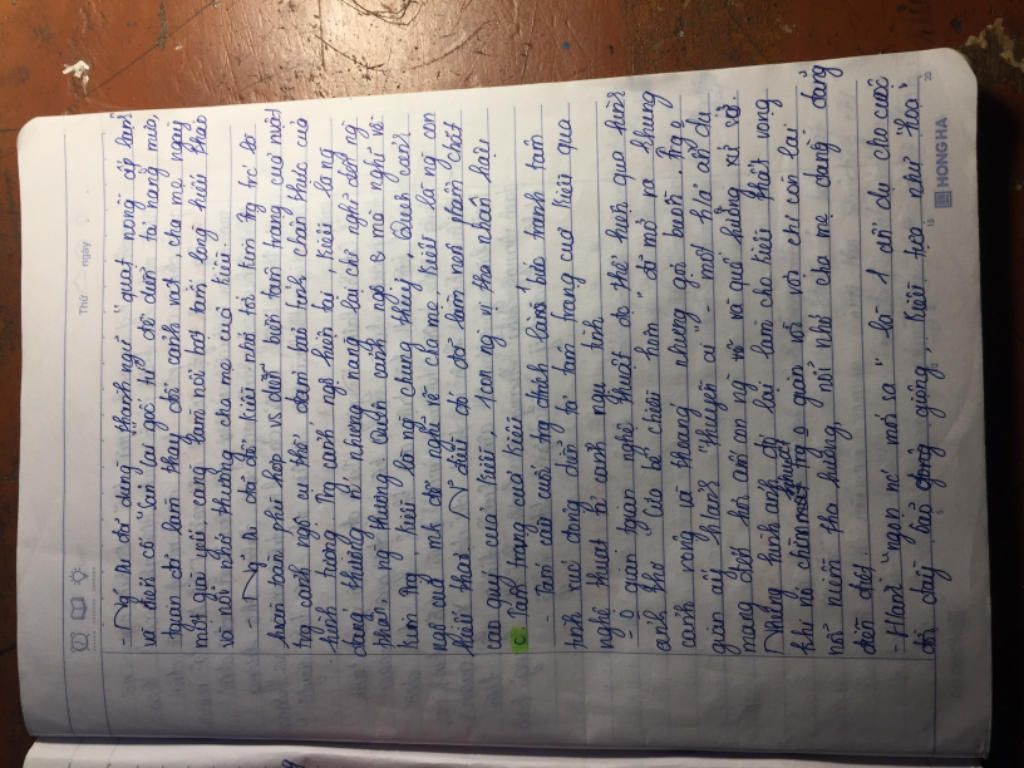 Thứ ngày
- N. Du đã dùng thành ngữ "quạt nồng ấp lạnh"
và điển cố "Sân Lai gốc tử" để diễn tả nắng mưa,
tgian đã làm thay đổi cảnh vật, cha mẹ ngày
một già yếu, càng làm nổi bật tấm lòng hiếu thảo
và nỗi nhớ thương cha mẹ của Kiều.
- N. Du đã để Kiều nhớ tới Kim Trg trc là
hoàn toàn phù hợp vs diễn biến tâm trạng của nvật
trg cảnh ngộ cụ thể đem lại tính chân thực của
hình tượng. Trg cảnh ngộ hiện tại, Kiều là ng
đáng thương n nhưng nàng lại chỉ nghĩ đến ng
thân, ng thương. Quên cảnh ngộ mà nghĩ về
Kim Trg, Kiều là ng chung thủy. Quên cảnh
ngộ của mk để nghĩ về cha mẹ Kiều là ng con
hiếu thảo. điều đó đã làm nên phẩm chất
cao quý của Kiều, 1 con ng vị tha nhân hậu
C. Tâm trạng của Kiều
- Tám câu cuối trg đtrích làm bức tranh tâm
tình xúc động diễn tả tâm trạng của Kiều qua
nghệ thuật tả cảnh ngụ tình
- gian tgian nghệ thuật đc thể hiện qua hình
ảnh thơ "Cửa bể chiều hôm" đã mở ra khung
cảnh rộng và thoáng nhưng gợi buồn. Trg
gian ấy hình ảnh "thuyền ai" - một h/ả ẩn dụ
mang đến hơi ấm con ng và quê hương xứ sở.
Nhưng hình ảnh đó lại làm cho Kiều thất vọng
khi nó chìm khuất trg gian vời vợi chỉ còn lại
nỗi niềm tha hương, nỗi nhớ cha mẹ dâng đẳng
đến đứt.
- H/ảnh "ngọn nc mới sa" là 1 ẩn dụ cho cuộc
đời chảy dòng giống, Kiều tựa như "hoa
HONGHA
5
15
20